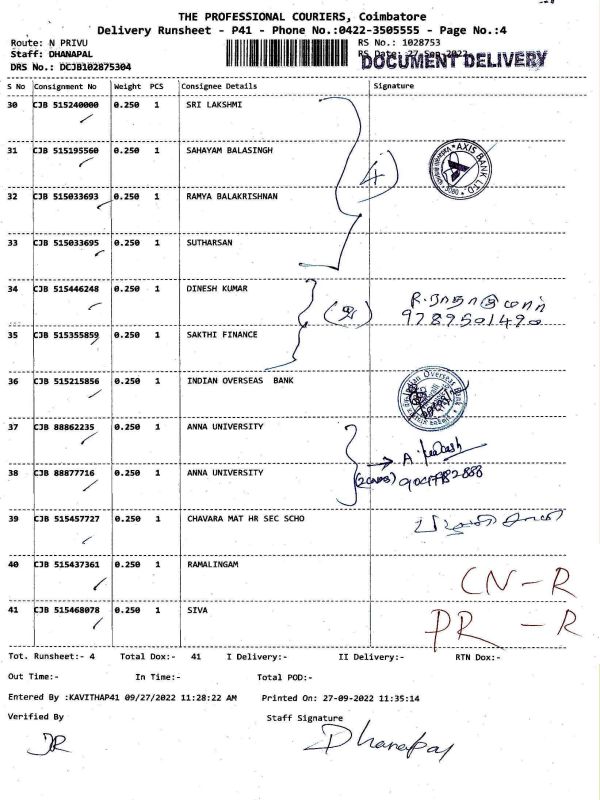 THE PROFESSIONAL COURIERS, Coimbatore
Delivery Runsheet - P41 - Phone No.:0422-3505555 - Page No.:4
Route: N PRIVU
RS No.: 1028753
Staff: DHANAPAL
RS Date: 27-Sep-2022
DOCUMENT DELIVERY
DRS No.: DCJB102875304
S No Consignment No Weight PCS Consignee Details Signature
30 CJB 515240000 0.250 1 SRI LAKSHMI
31 CJB 515195560 0.250 1 SAHAYAM BALASINGH
AXIS BANK LTD.
4
32 CJB 515033693 0.250 1 RAMYA BALAKRISHNAN
33 CJB 515033695 0.250 1 SUTHARSAN
34 CJB 515446248 0.250 1 DINESH KUMAR
9789501490
35 CJB 515355859 0.250 1 SAKTHI FINANCE
36 CJB 515215856 0.250 1 INDIAN OVERSEAS BANK
Indian Overseas Bank
37 CJB 88862235 0.250 1 ANNA UNIVERSITY
38 CJB 88877716 0.250 1 ANNA UNIVERSITY
39 CJB 515457727 0.250 1 CHAVARA MAT HR SEC SCHO
40 CJB 515437361 0.250 1 RAMALINGAM
CN-R
41 CJB 515468078 0.250 1 SIVA
PR - R
Tot. Runsheet:- 4 Total Dox:- 41 I Delivery:- II Delivery:- RTN Dox:-
Out Time:- In Time:- Total POD:-
Entered By :KAVITHAP41 09/27/2022 11:28:22 AM Printed On: 27-09-2022 11:35:14
Verified By Staff Signature
Dhanapal